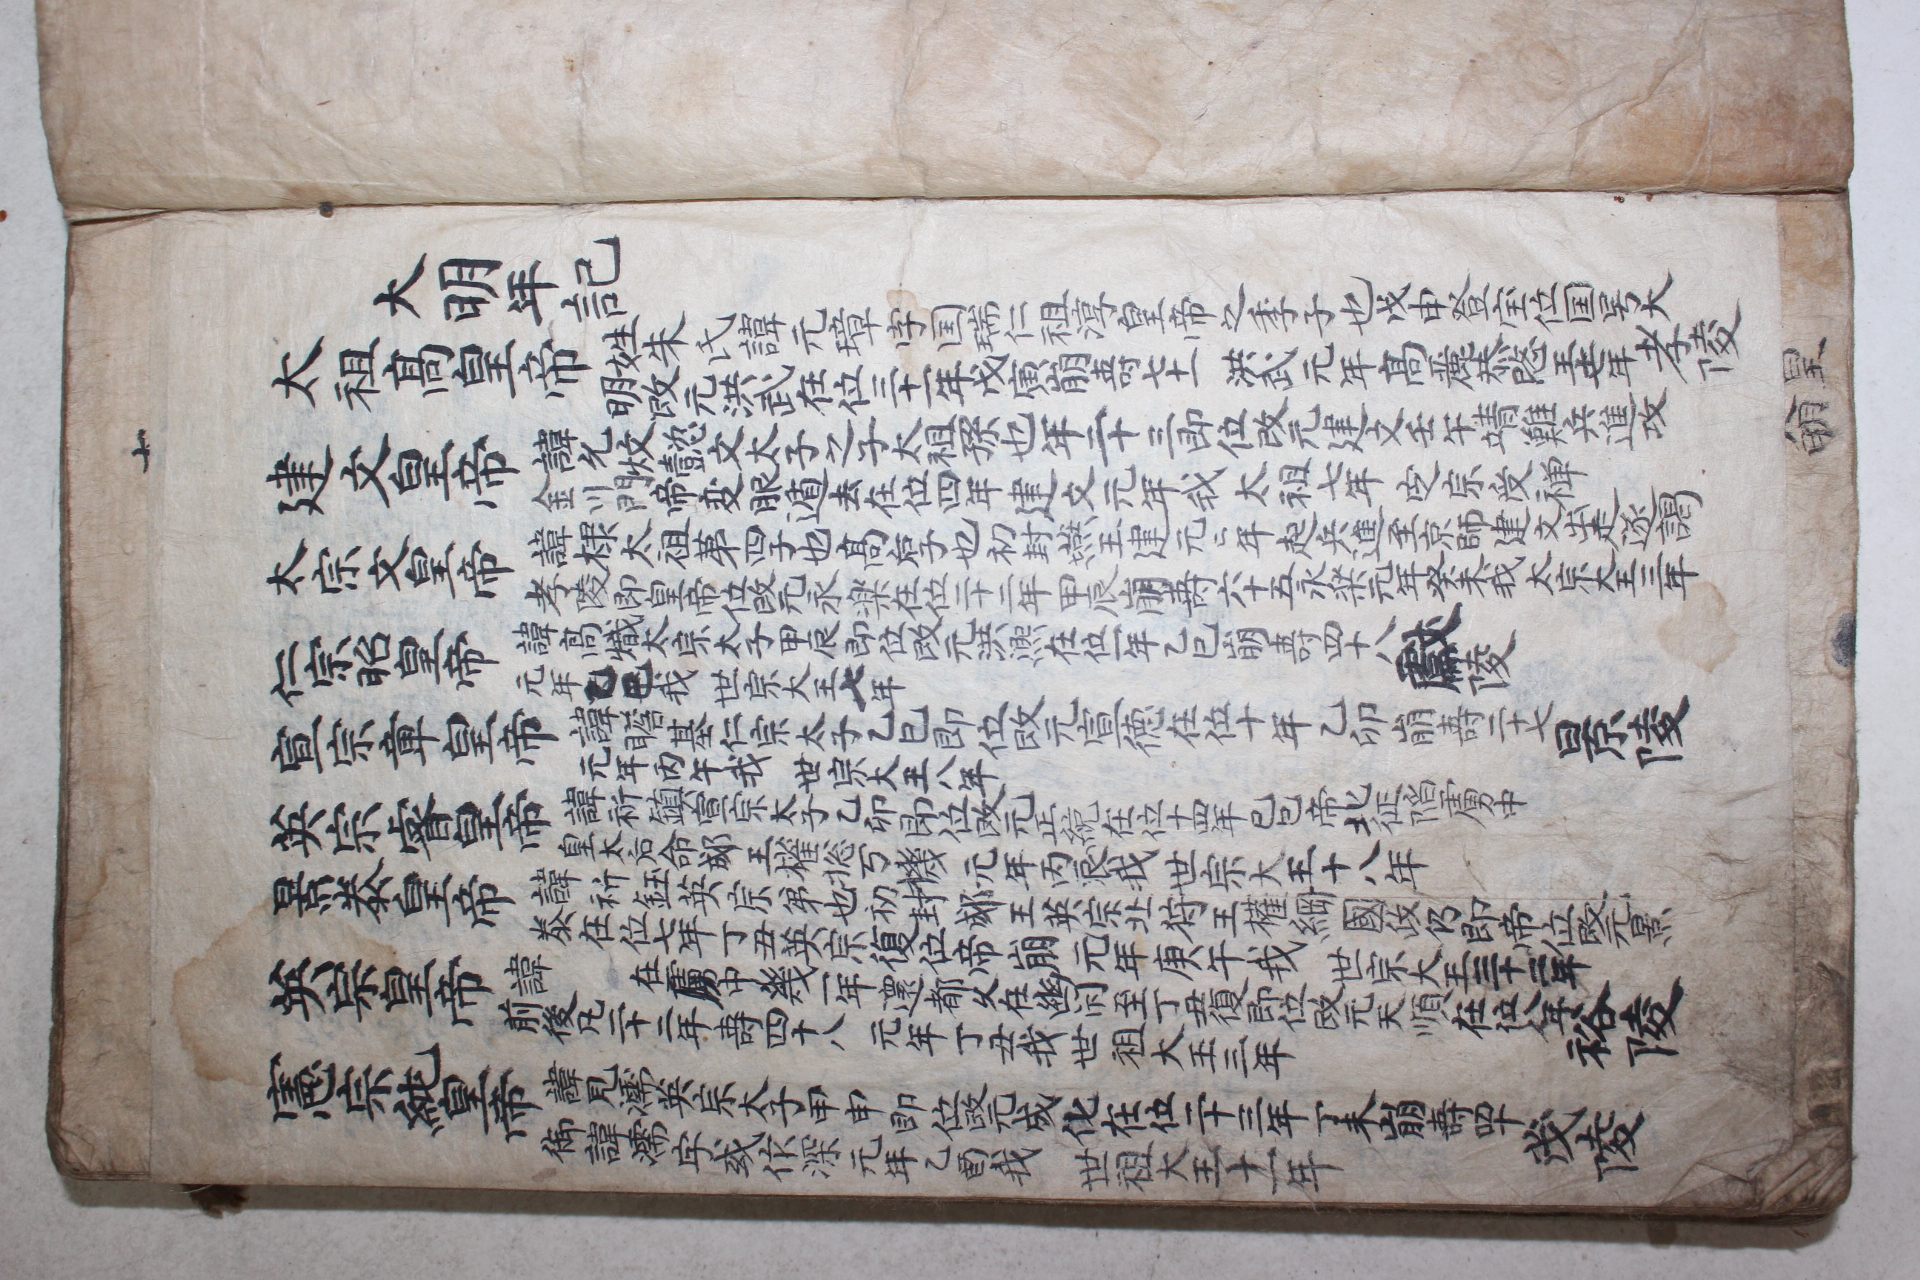 大明年記
太祖高皇帝
姓朱氏諱元璋字国瑞仁祖淳皇帝之季子也戊申登宝位国号大
明改元洪武在位三十一年戊寅崩壽七十一 洪武元年高麗恭愍王七年 孝陵
建文皇帝
諱允炆懿文太子之子太祖孫也年二十三即位改元建文壬午靖難兵進攻
金川門帝变服遁去在位四年建文元年我 太祖七年 定宗受禅
太宗文皇帝
諱棣太祖第四子也高后子也初封燕王建元二年起兵進至京師建文出走遂謁
孝陵即皇帝位改元永楽在位二十二年甲辰崩壽六十五永楽元年癸未我 太宗大王三年
仁宗昭皇帝
諱高熾太宗太子甲辰即位改元洪熙在位一年乙巳崩壽四十八 獻陵
元年乙巳我 世宗大王七年
宣宗章皇帝
諱瞻基仁宗太子乙巳即位改元宣德在位十年乙卯崩壽二十七 景陵
元年丙午我 世宗大王八年
英宗睿皇帝
諱祈鎮宣宗太子乙卯即位改元正統在位十四年己巳帝北征陷虜中
皇太后命郕王權総万機 元年丙辰我 世宗大王十八年
景泰皇帝
諱祈鈺英宗弟也初封郕王英宗北狩王權綱國政仍即帝位改元景
泰在位七年丁丑英宗復位帝崩 元年庚午我 世宗大王三十二年
英宗皇帝
諱 在虜中幾一年還都久在幽閉至丁丑復即位改元天順在位八年 裕陵
前後凡二十二年壽四十八 元年丁丑我 世祖大王三年
憲宗純皇帝
諱見濡英宗太子甲申即位改元成化在位二十三年丁未崩壽四十 茂陵
御諱濡字或作深 元年乙酉我 世祖大王十一年
皇